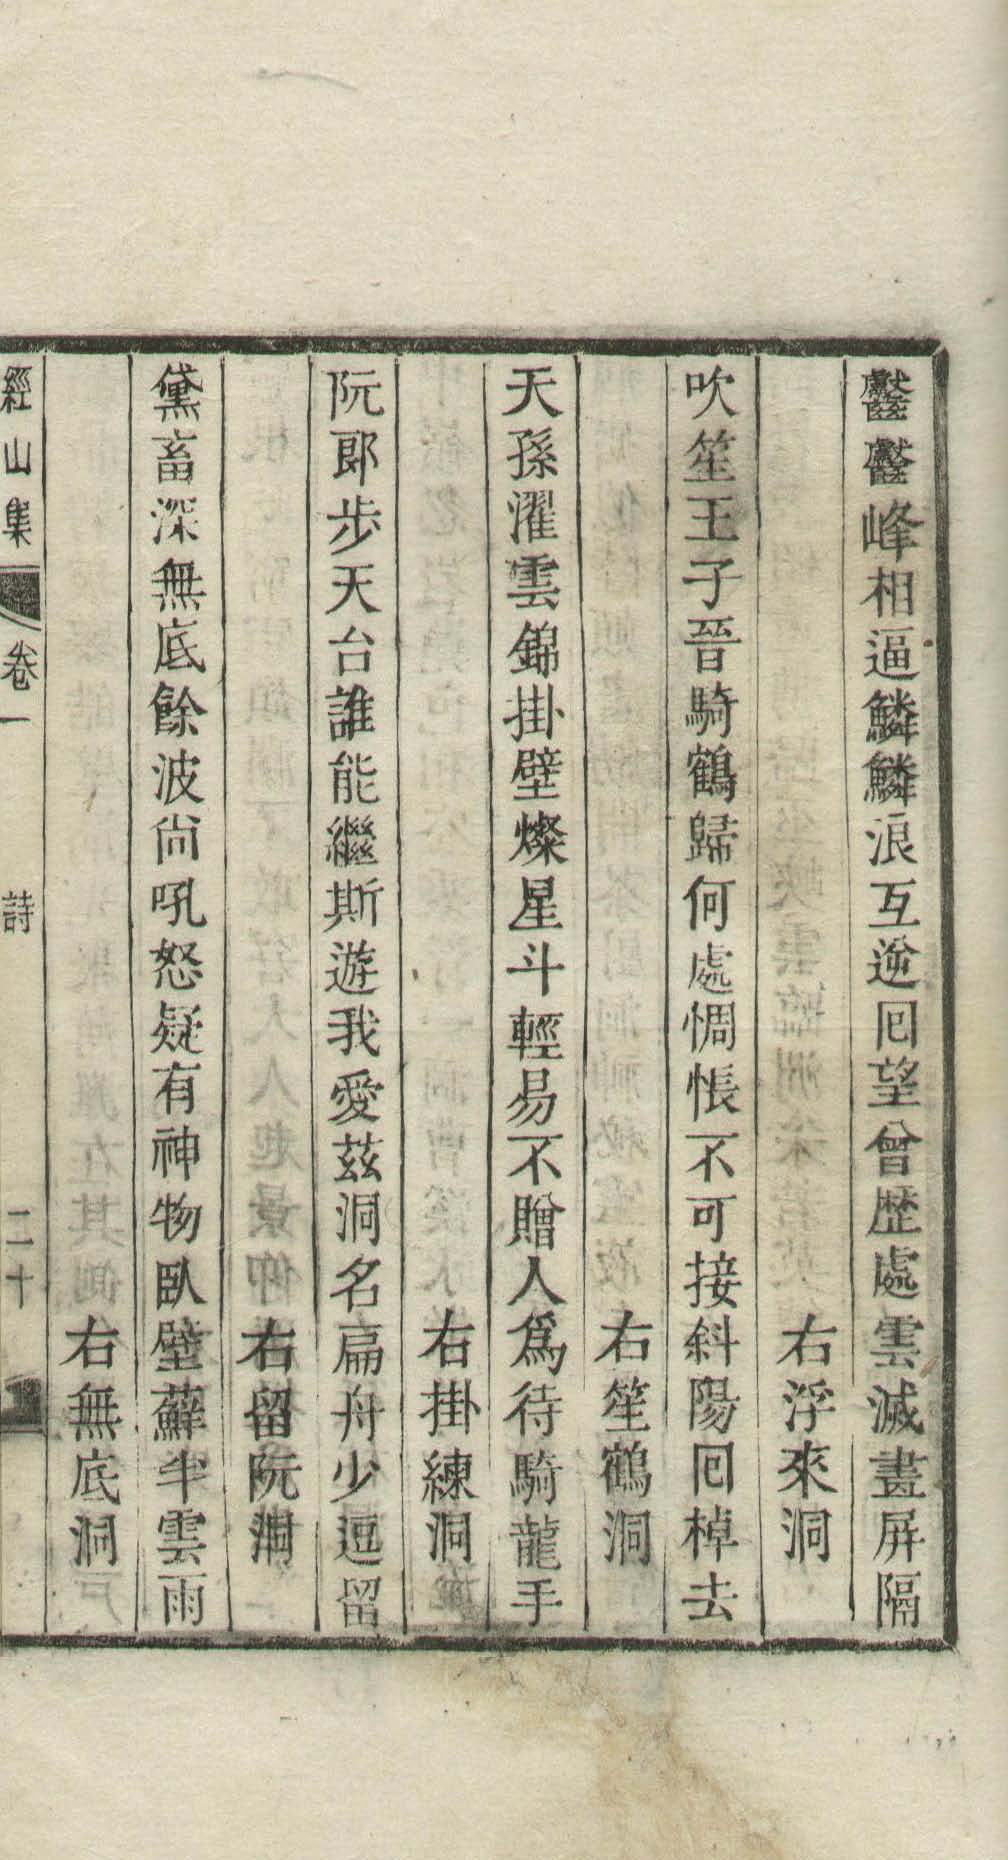 齾齾峰相逼鱗鱗浪互逆囘望曾歴處雲滅畫屏隔
右浮來洞
吹笙王子晉騎鶴歸何處惆悵不可接斜陽囘棹去
右笙鶴洞
天孫濯雲錦掛壁燦星斗輕易不贈人爲待騎龍手
右掛練洞
阮郎步天台誰能繼斯遊我愛茲洞名扁舟少逗留
右留阮洞
黛畜深無底餘波尚吼怒疑有神物臥壁蘚半雲雨
右無底洞
經山集 卷一 詩 二十